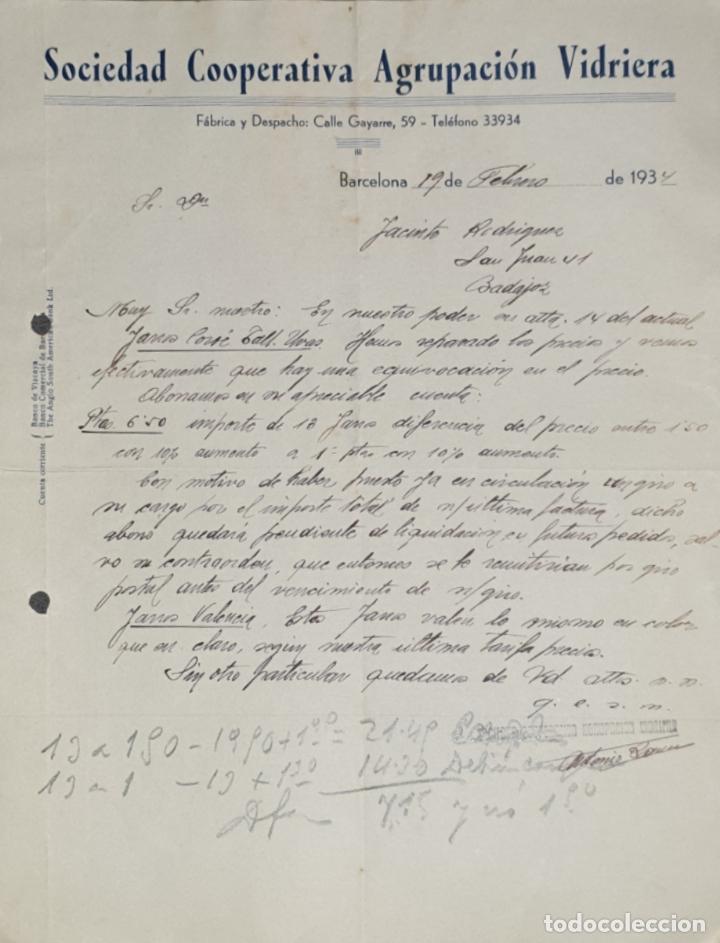 Sociedad Cooperativa Agrupación Vidriera
Fábrica y Despacho: Calle Gayarre, 59 - Teléfono 33934
Barcelona 19 de Febrero de 1934
Sr. Dn
Jacinto Rodriguez
San Juan 41
Badajoz
Cuenta corriente
Banco de Vizcaya
Banco Comercial de Bar
The Anglo South American Bank Ltd.
Muy Sr. nuestro: En nuestro poder su atta. 14 del actual
Jarros Corsé Tall. Uvas Hemos repasado los precios y vemos
efectivamente que hay una equivocación en el precio.
Abonamos en su apreciable cuenta:
Ptas. 6'50 importe de 13 Jarros diferencia del precio entre 1'50
con 10% aumento a 1'- pta con 10% aumento.
Con motivo de haber puesto ya en circulación un giro a
su cargo por el importe total de n/última factura, dicho
abono quedará pendiente de liquidación en futuro pedidos, sal-
vo su contraorden, que entonces se le remitirian por giro
postal antes del vencimiento de n/giro.
Jarros Valencia, Estos Jarros valen lo mismo en color
que en claro, según nuestra última tarifa precios.
Sin otro particular quedamos de Vd. atts. s. s.
q. e. s. m.
Antonio
13 a 150 - 1950 + 1'95 = 21.45
13 a 1 - 13 + 130 14.30
7.15 y no
todocoleccion